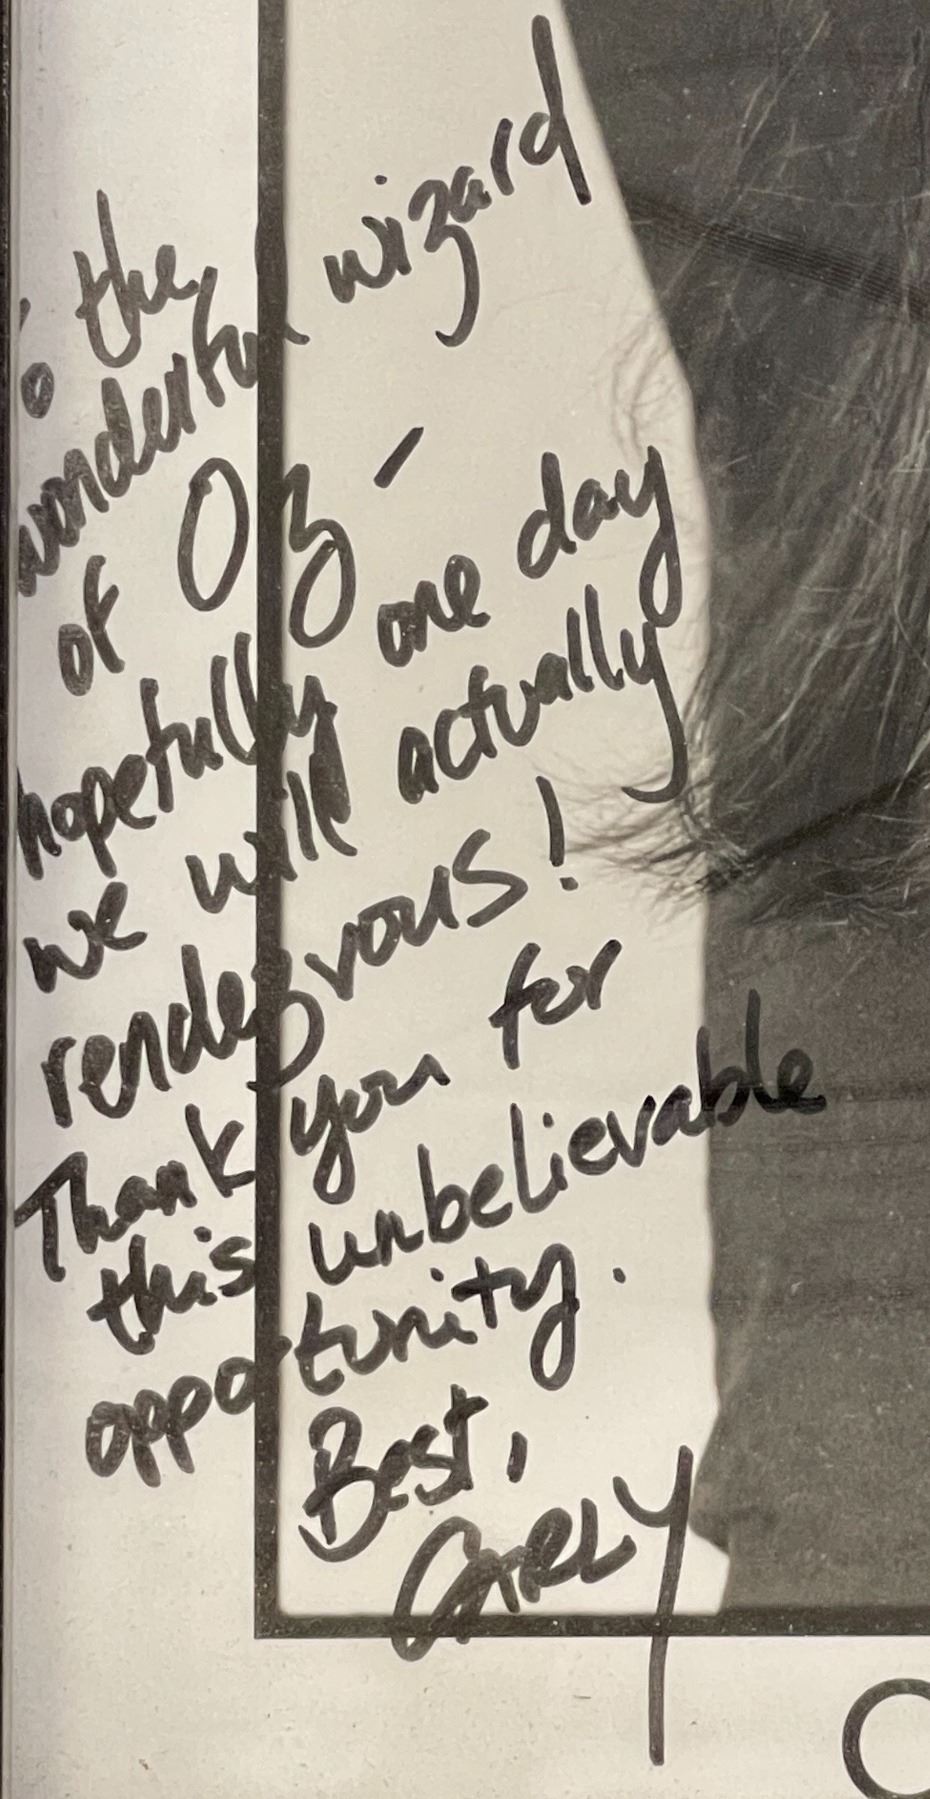 To the
wonderful wizard
of Oz -
hopefully one day
we will actually
rendezvous!
Thank you for
this unbelievable
opportunity.
Best,
CARLY